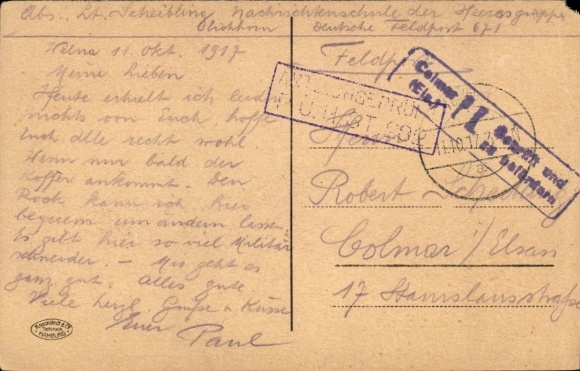 Abs. Lt. Scheibling Nachrichtenschule der Heeresgruppe
Eichhorn Deutsche Feldpost 671
Wilna 11. Okt. 1917
Feldpost
Meine Lieben
Heute erhielt ich leider
nichts von Euch hoffe
Euch alle recht wohl
Wenn nur bald der
Koffer ankommt. Den
Rock kann ich hier
bequem um andern lassen
Es gibt hier so viel Militär
schneider. – Mir geht es
ganz gut. Alles gute
Viele herzl. Grüße u Küsse
Euer Paul
Colmar
(Els.)
P.K.
Geprüft und
zu befördern
Robert
Colmar i/Elsan
17 Stanislausstraße
HAMBURG